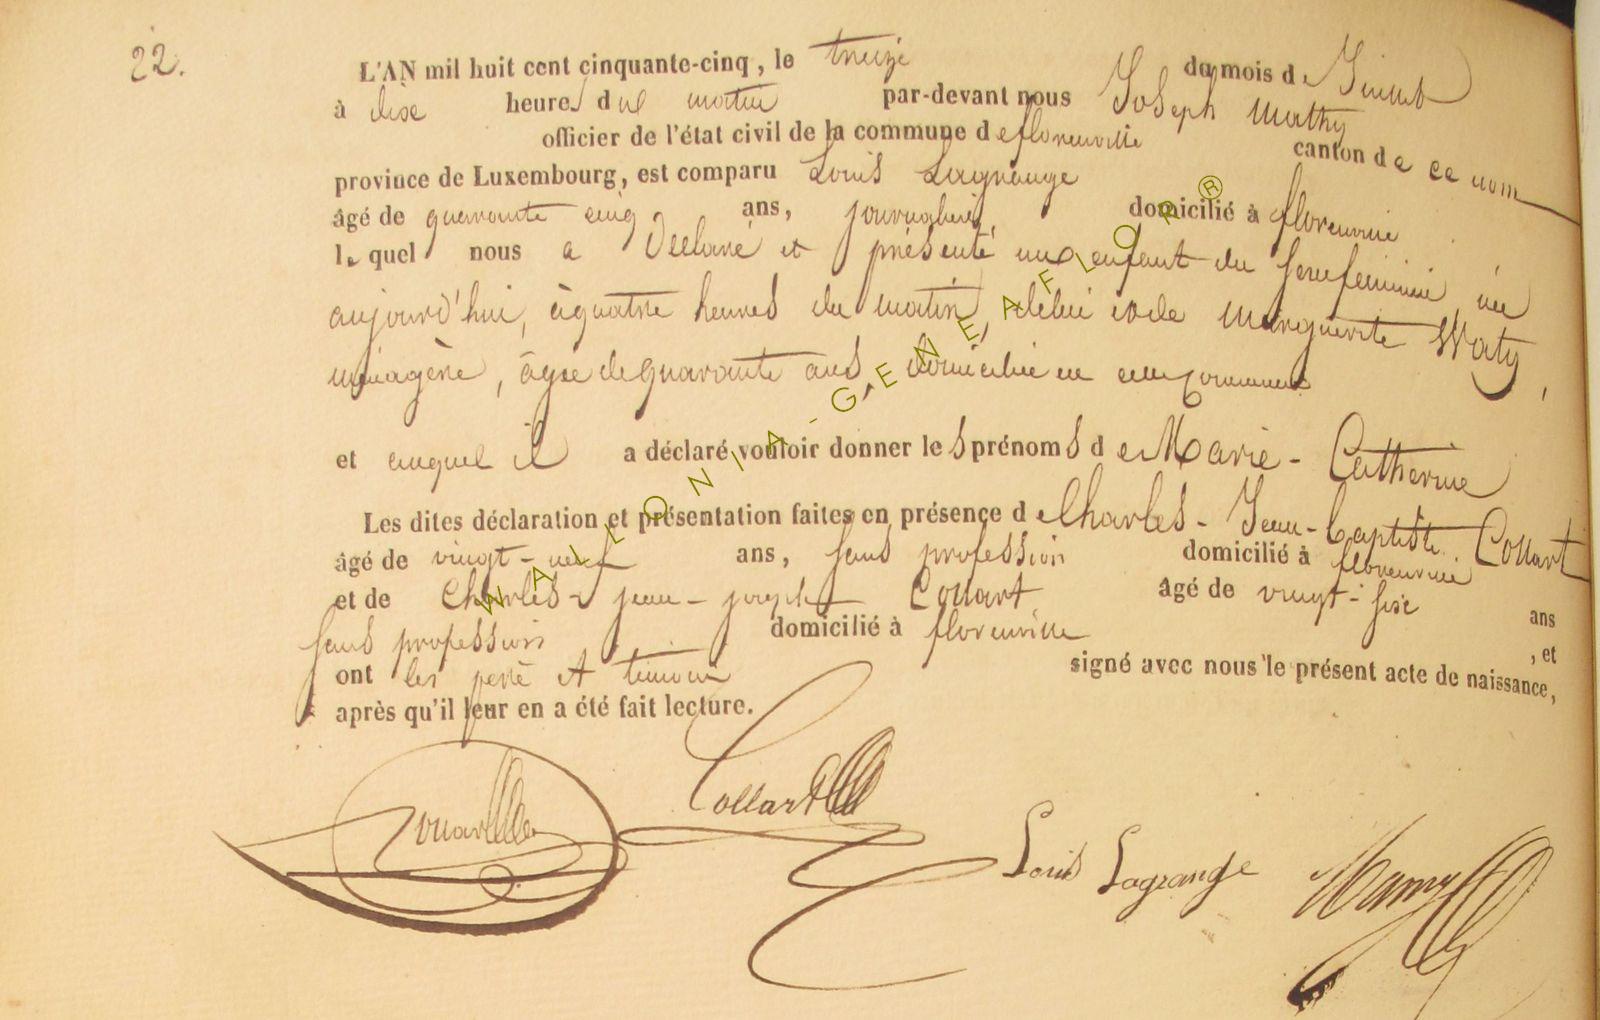 22.
L'AN mil huit cent cinquante-cinq, le treize du mois de Juillet
à dix heures du matin par-devant nous Joseph Mathy
officier de l'état civil de la commune de florenville canton de ce nom
province de Luxembourg, est comparu Louis Lagrange
âgé de quarante cinq ans, journalier domicilié à florenville
lequel nous a Déclaré et présenté un enfant du sexe féminin née
aujourd'hui, à quatre heures du matin, de lui et de Marguerite Waty,
ménagère, âgée de quarante ans, domiciliée en cette Commune
et auquel il a déclaré vouloir donner les prénoms de Marie-Catherine
Les dites déclaration et présentation faites en présence de Charles-Jean-baptiste Collart
âgé de vingt-neuf ans, sans profession domicilié à florenville
et de Charles-jean-joseph Collart âgé de vingt-six ans
sans profession domicilié à florenville, et
ont les père et témoins signé avec nous le présent acte de naissance,
après qu'il leur en a été fait lecture.
Collart
Collart
Louis Lagrange
WALLONIA-GENEAFLOR®